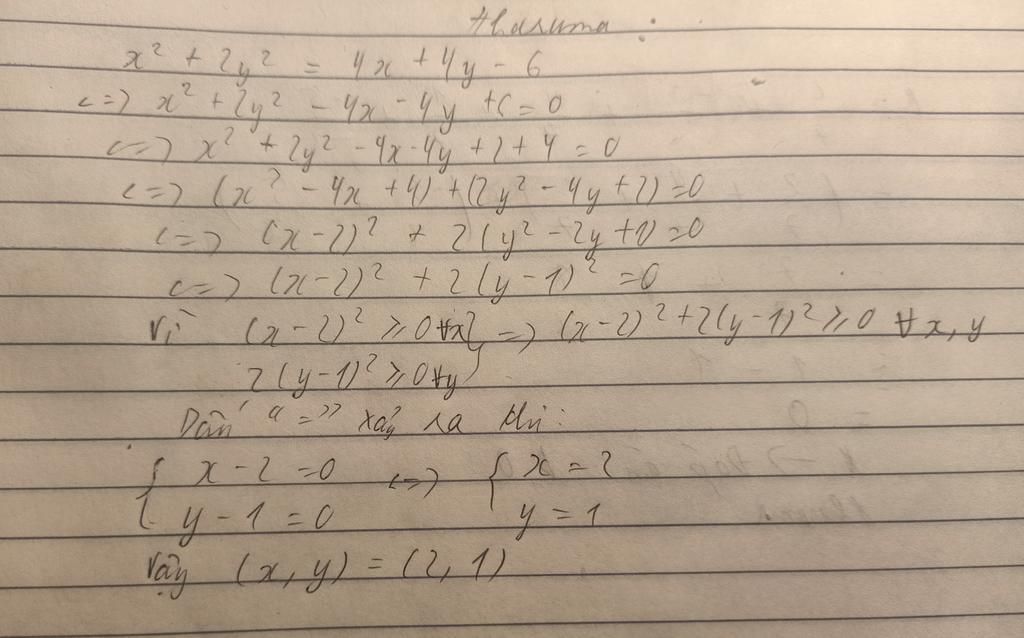 tharuma :
x² + 2y² = 4x + 4y - 6
<=> x² + 2y² - 4x - 4y + 6 = 0
<=> x² + 2y² - 4x - 4y + 2 + 4 = 0
<=> (x² - 4x + 4) + (2y² - 4y + 2) = 0
<=> (x - 2)² + 2(y² - 2y + 1) = 0
<=> (x - 2)² + 2(y - 1)² = 0
Vì (x - 2)² ≥ 0 ∀x } => (x - 2)² + 2(y - 1)² ≥ 0 ∀ x, y
2(y - 1)² ≥ 0 ∀y
Dấu "=" xảy ra khi:
{ x - 2 = 0 <=> { x = 2
y - 1 = 0 y = 1
Vậy (x, y) = (2, 1)